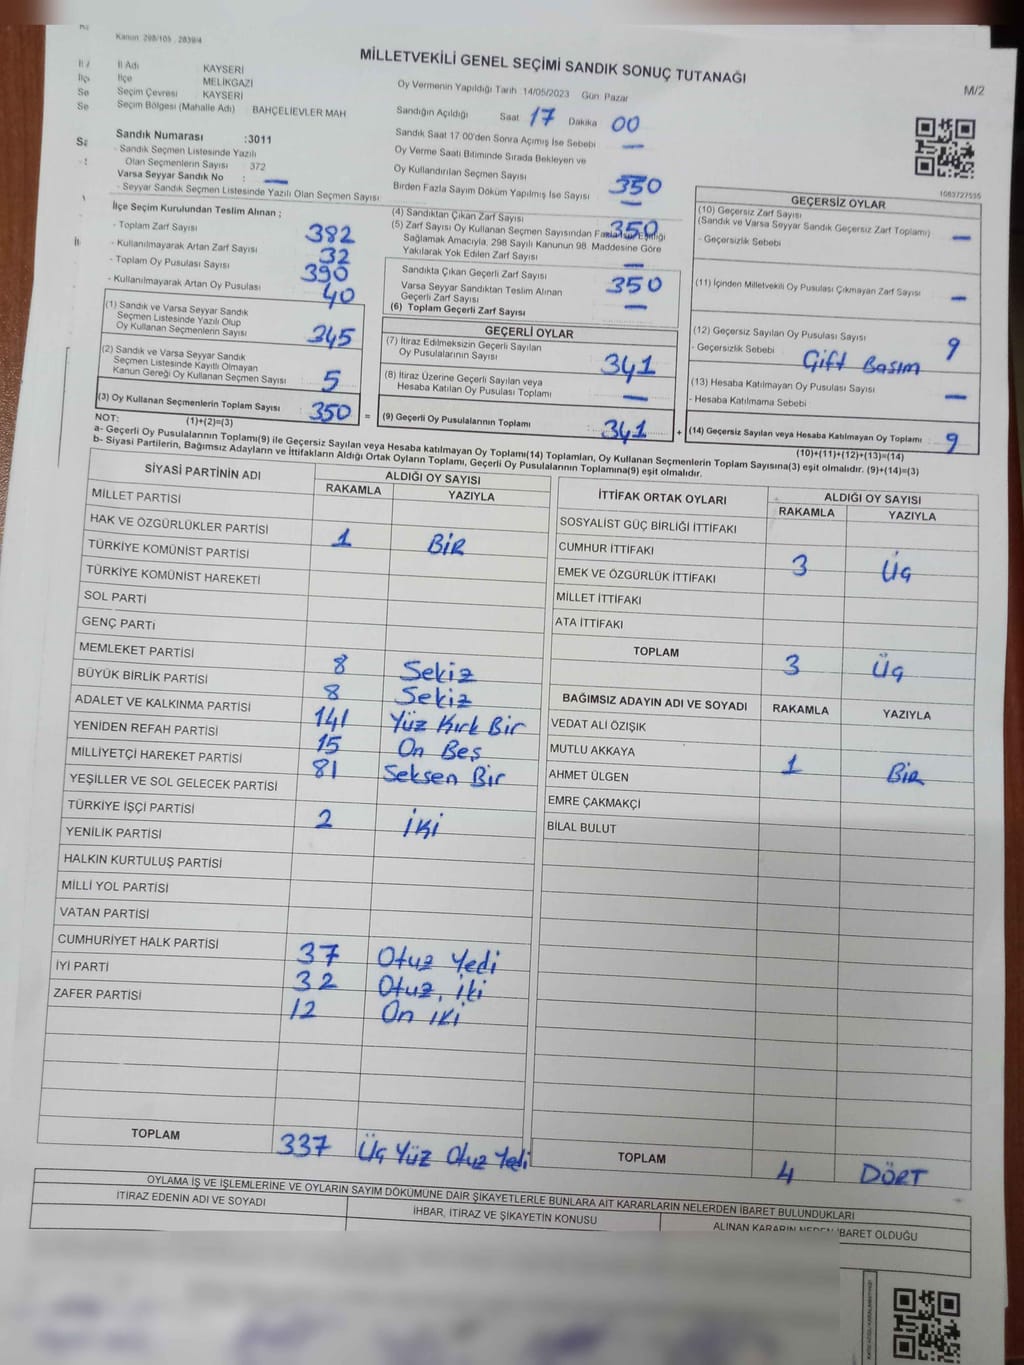 Kanun 298/105 . 2839/4
MİLLETVEKİLİ GENEL SEÇİMİ SANDIK SONUÇ TUTANAĞI
M/2
İl Adı KAYSERİ
İlçe MELİKGAZİ
Seçim Çevresi KAYSERİ
Seçim Bölgesi (Mahalle Adı) BAHÇELİEVLER MAH
Sandık Numarası :3011
- Sandık Seçmen Listesinde Yazılı
Olan Seçmenlerin Sayısı : 372
Varsa Seyyar Sandık No : —
- Seyyar Sandık Seçmen Listesinde Yazılı Olan Seçmen Sayısı
Oy Vermenin Yapıldığı Tarih 14/05/2023 Gün Pazar
Sandığın Açıldığı Saat 17 Dakika 00
Sandık Saat 17 00'den Sonra Açımış İse Sebebi —
Oy Verme Saati Bitiminde Sırada Bekleyen ve
Oy Kullandırılan Seçmen Sayısı 350
Birden Fazla Sayım Döküm Yapılmış İse Sayısı —
1083727595
İlçe Seçim Kurulundan Teslim Alınan ;
- Toplam Zarf Sayısı 382
- Kullanılmayarak Artan Zarf Sayısı 32
- Toplam Oy Pusulası Sayısı 390
- Kullanılmayarak Artan Oy Pusulası 40
(1) Sandık ve Varsa Seyyar Sandık
Seçmen Listesinde Yazılı Olup
Oy Kullanan Seçmenlerin Sayısı 345
(2) Sandık ve Varsa Seyyar Sandık
Seçmen Listesinde Kayıtlı Olmayan
Kanun Gereği Oy Kullanan Seçmen Sayısı 5
(3) Oy Kullanan Seçmenlerin Toplam Sayısı 350 =
(1)+(2)=(3)
(4) Sandıktan Çıkan Zarf Sayısı 350
(5) Zarf Sayısı Oy Kullanan Seçmen Sayısından Fazla İse, Eşitliği
Sağlamak Amacıyla, 298 Sayılı Kanunun 98. Maddesine Göre
Yakılarak Yok Edilen Zarf Sayısı —
Sandıkta Çıkan Geçerli Zarf Sayısı 350
Varsa Seyyar Sandıktan Teslim Alınan
Geçerli Zarf Sayısı —
(6) Toplam Geçerli Zarf Sayısı
GEÇERLİ OYLAR
(7) İtiraz Edilmeksizin Geçerli Sayılan
Oy Pusulalarının Sayısı 341
(8) İtiraz Üzerine Geçerli Sayılan veya
Hesaba Katılan Oy Pusulası Toplamı —
(9) Geçerli Oy Pusulalarının Toplamı 341 +
GEÇERSİZ OYLAR
(10) Geçersiz Zarf Sayısı
(Sandık ve Varsa Seyyar Sandık Geçersiz Zarf Toplamı) —
- Geçersizlik Sebebi
(11) İçinden Milletvekili Oy Pusulası Çıkmayan Zarf Sayısı —
(12) Geçersiz Sayılan Oy Pusulası Sayısı 9
- Geçersizlik Sebebi Çift Basım
(13) Hesaba Katılmayan Oy Pusulası Sayısı —
- Hesaba Katılmama Sebebi
(14) Geçersiz Sayılan veya Hesaba Katılmayan Oy Toplamı 9
(10)+(11)+(12)+(13)=(14)
NOT:
a- Geçerli Oy Pusulalarının Toplamı(9) ile Geçersiz Sayılan veya Hesaba katılmayan Oy Toplamı(14) Toplamları, Oy Kullanan Seçmenlerin Toplam Sayısına(3) eşit olmalıdır. (9)+(14)=(3)
b- Siyasi Partilerin, Bağımsız Adayların ve İttifakların Aldığı Ortak Oyların Toplamı, Geçerli Oy Pusulalarının Toplamına(9) eşit olmalıdır.
SİYASİ PARTİNİN ADI ALDIĞI OY SAYISI
RAKAMLA YAZIYLA
MİLLET PARTİSİ
HAK VE ÖZGÜRLÜKLER PARTİSİ 1 BİR
TÜRKİYE KOMÜNİST PARTİSİ
TÜRKİYE KOMÜNİST HAREKETİ
SOL PARTİ
GENÇ PARTİ
MEMLEKET PARTİSİ 8 Sekiz
BÜYÜK BİRLİK PARTİSİ 8 Sekiz
ADALET VE KALKINMA PARTİSİ 141 Yüz Kırk Bir
YENİDEN REFAH PARTİSİ 15 On Beş
MİLLİYETÇİ HAREKET PARTİSİ 81 Seksen Bir
YEŞİLLER VE SOL GELECEK PARTİSİ
TÜRKİYE İŞÇİ PARTİSİ 2 İKİ
YENİLİK PARTİSİ
HALKIN KURTULUŞ PARTİSİ
MİLLİ YOL PARTİSİ
VATAN PARTİSİ
CUMHURİYET HALK PARTİSİ 37 Otuz Yedi
İYİ PARTİ 32 Otuz İki
ZAFER PARTİSİ 12 On İKİ
TOPLAM 337 Üç Yüz Otuz Yedi
İTTİFAK ORTAK OYLARI ALDIĞI OY SAYISI
RAKAMLA YAZIYLA
SOSYALİST GÜÇ BİRLİĞİ İTTİFAKI
CUMHUR İTTİFAKI 3 Üç
EMEK VE ÖZGÜRLÜK İTTİFAKI
MİLLET İTTİFAKI
ATA İTTİFAKI
TOPLAM 3 Üç
BAĞIMSIZ ADAYIN ADI VE SOYADI RAKAMLA YAZIYLA
VEDAT ALİ ÖZIŞIK
MUTLU AKKAYA 1 BİR
AHMET ÜLGEN
EMRE ÇAKMAKÇİ
BİLAL BULUT
TOPLAM 4 DÖRT
OYLAMA İŞ VE İŞLEMLERİNE VE OYLARIN SAYIM DÖKÜMÜNE DAİR ŞİKAYETLERLE BUNLARA AİT KARARLARIN NELERDEN İBARET BULUNDUKLARI
İTİRAZ EDENİN ADI VE SOYADI
İHBAR, İTİRAZ VE ŞİKAYETİN KONUSU
ALINAN KARARIN NEDEN İBARET OLDUĞU